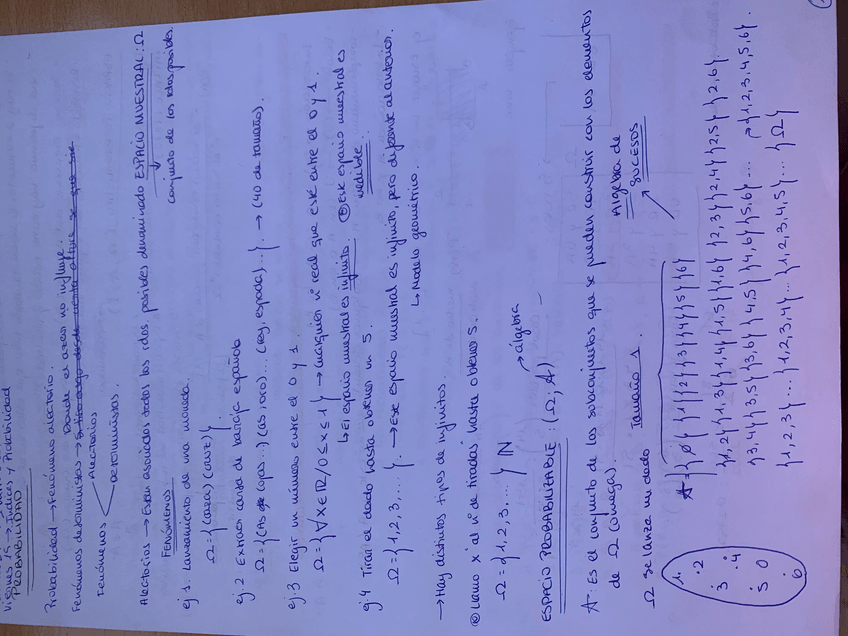 PROBABILIDAD
Probabilidad → Fenómeno aleatorio.
Donde el azar no influye.
Fenómenos deterministas →
Fenómenos Aleatorios
Deterministas.
Aleatorios → Están asociados todos los rdos. posibles denominado ESPACIO MUESTRAL: Ω
FENÓMENOS:
conjunto de los rdos posibles
ej 1. Lanzamiento de una moneda.
Ω = {(cara) (cruz)}.
ej. 2 Extraer carta de baraja española
Ω = {(As copas)...(as, oro)...(Rey, espada)...}. → (40 de tamaño).
ej. 3 Elegir un número entre el 0 y 1.
Ω = {∀x∈ℝ/0≤x≤1} → cualquier nº real que esté entre el 0 y 1.
↳ El espacio muestral es infinito. Este espacio muestral es
medible.
ej. 4 Tirar el dado hasta obtener un 5.
Ω = {1,2,3,...}. → Ese espacio muestral es infinito, pero diferente al anterior.
↳ Modelo geométrico.
→ Hay distintos tipos de infinitos.
Llamo 'x' al nº de tiradas hasta obtener 5.
Ω = {1,2,3,...} ℕ
→ álgebra
ESPACIO PROBABILIZABLE: (Ω; A)
A: Es el conjunto de los subconjuntos que se pueden construir con los elementos
de Ω (omega).
Algebra de
SUCESOS
Ω se lanza un dado
Tamaño 1.
1. .2 3 .4 5 0 6
A = {∅} {1} {2} {3} {4} {5} {6}
{1,2} {1,3} {1,4} {1,5} {1,6} {2,3} {2,4} {2,5} {2,6}
{3,4} {3,5} {3,6} {4,5} {4,6} {5,6} ... → {1,2,3,4,5,6}.
{1,2,3} ... {1,2,3,4} ... {1,2,3,4,5} ... {Ω}